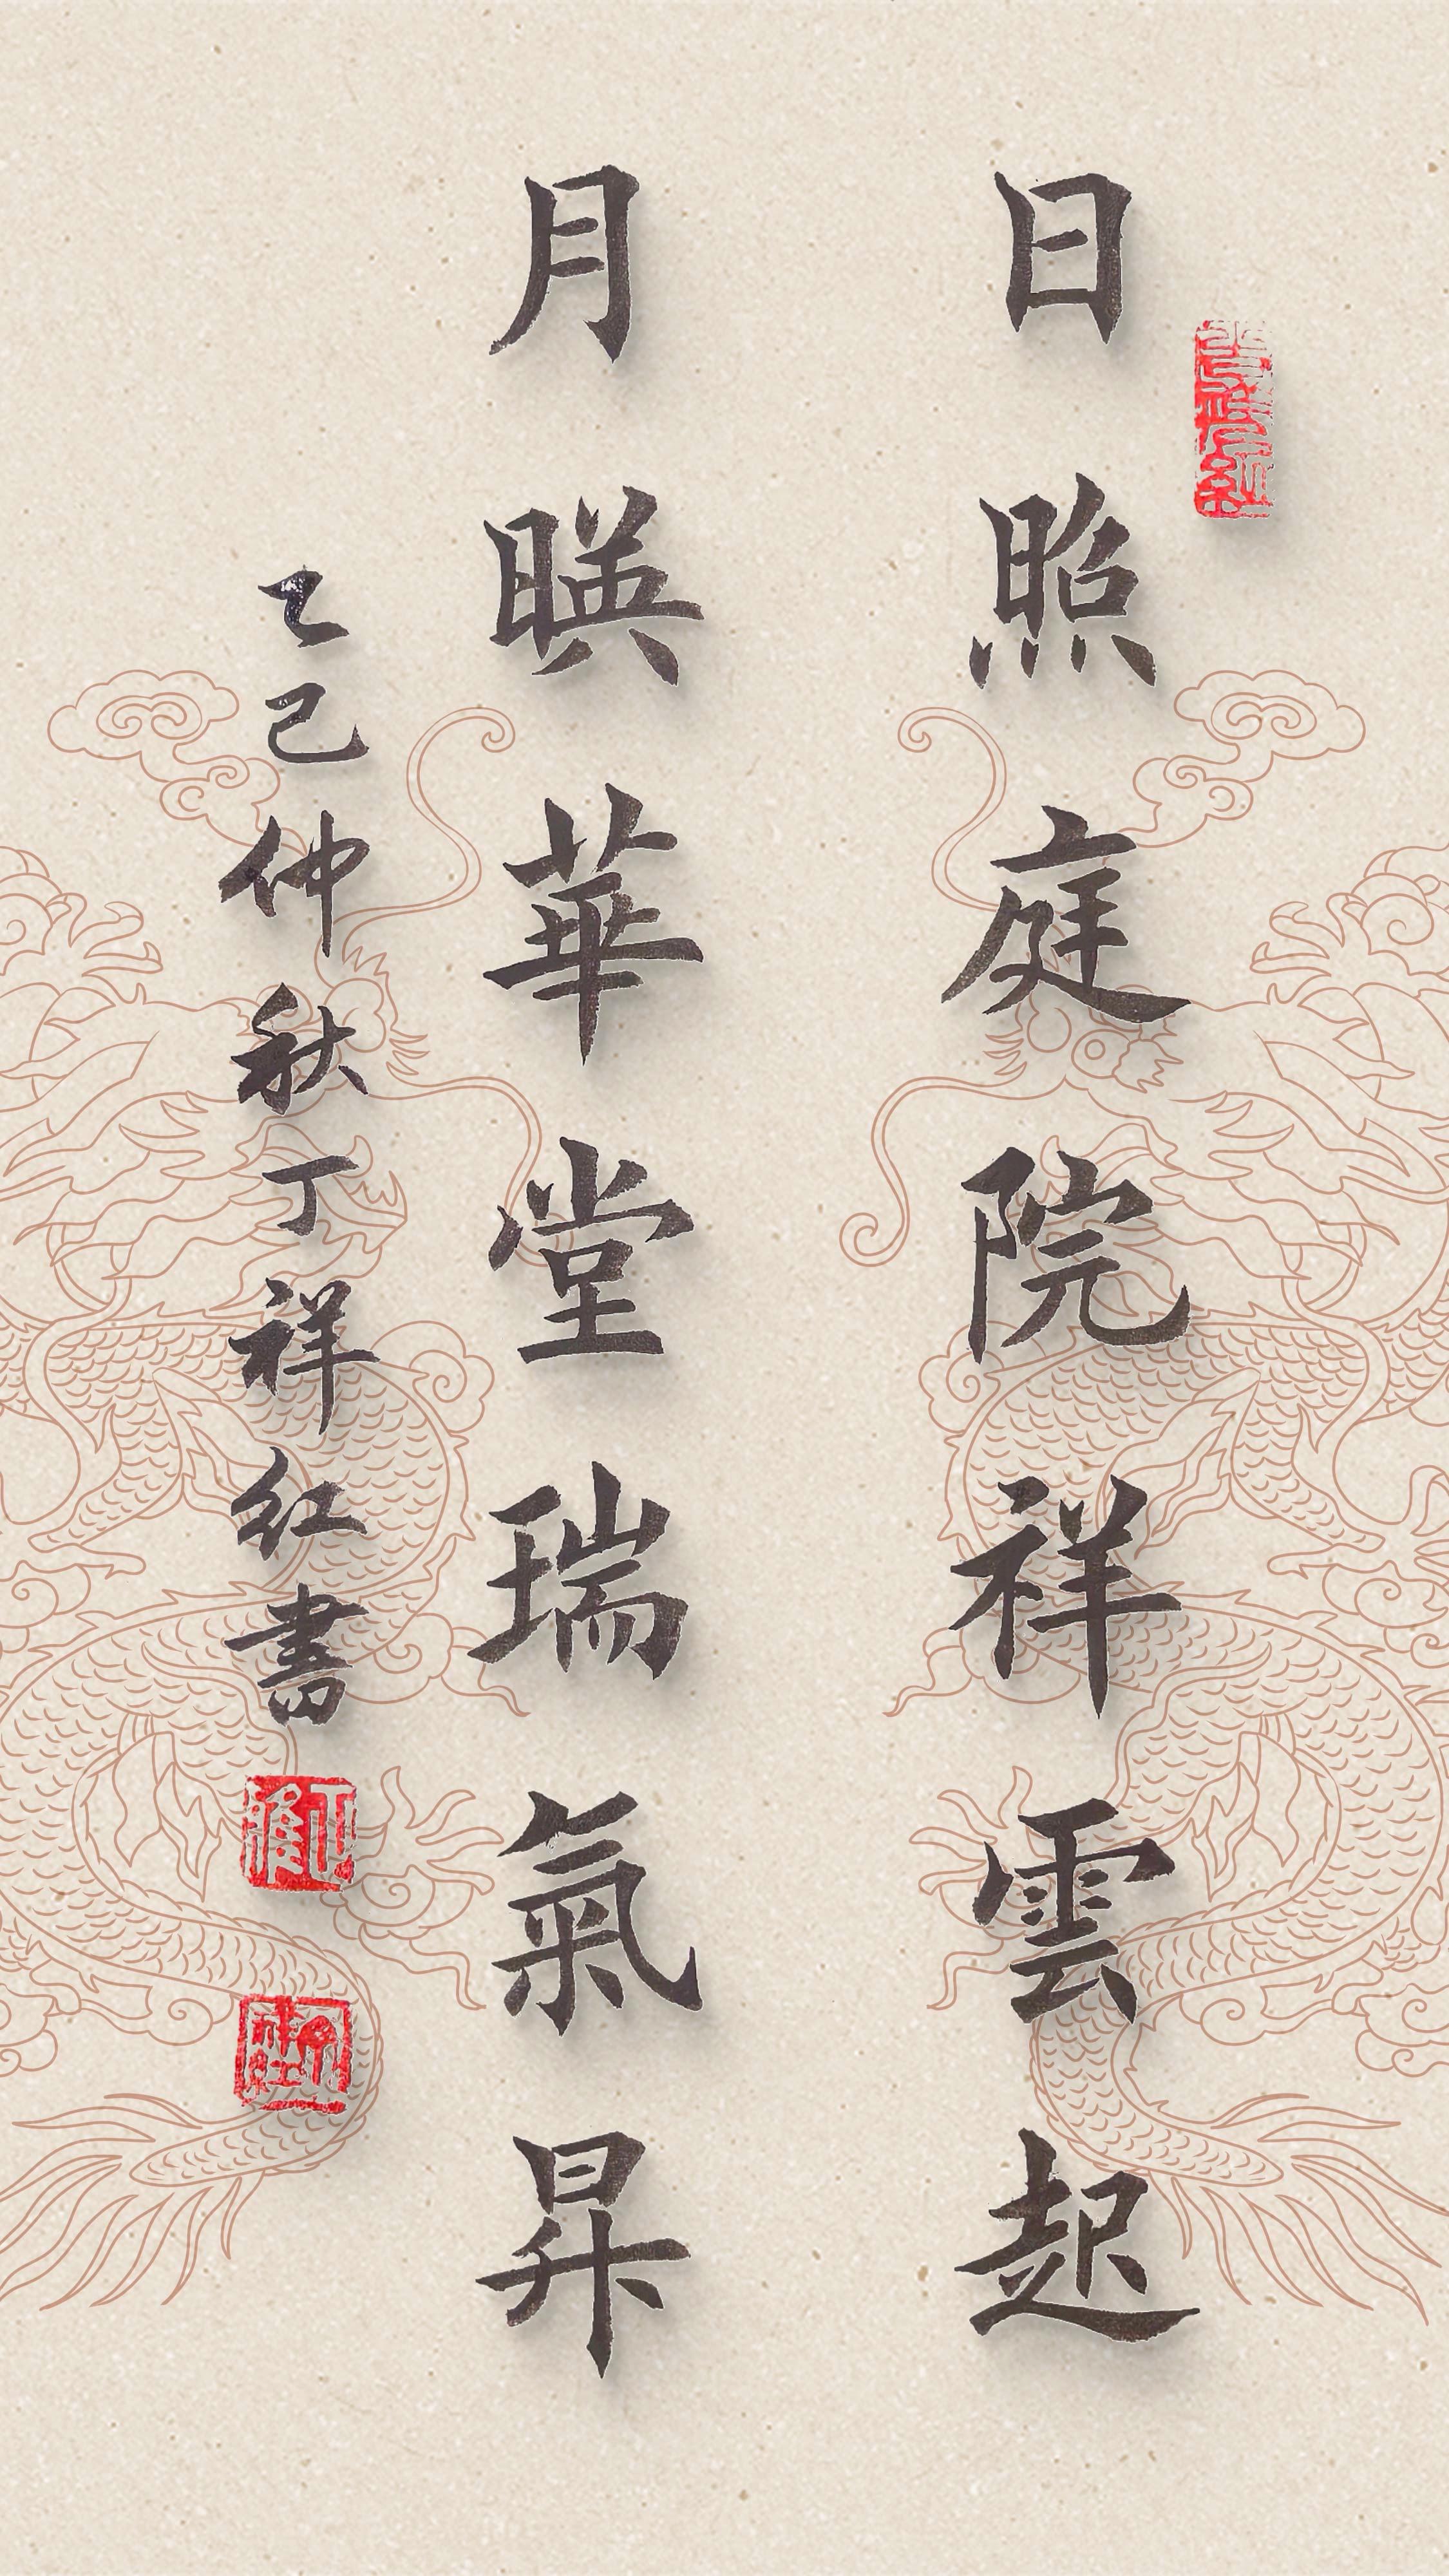 日照庭院祥雲起
月暎華堂瑞氣昇
乙巳仲秋丁祥红書